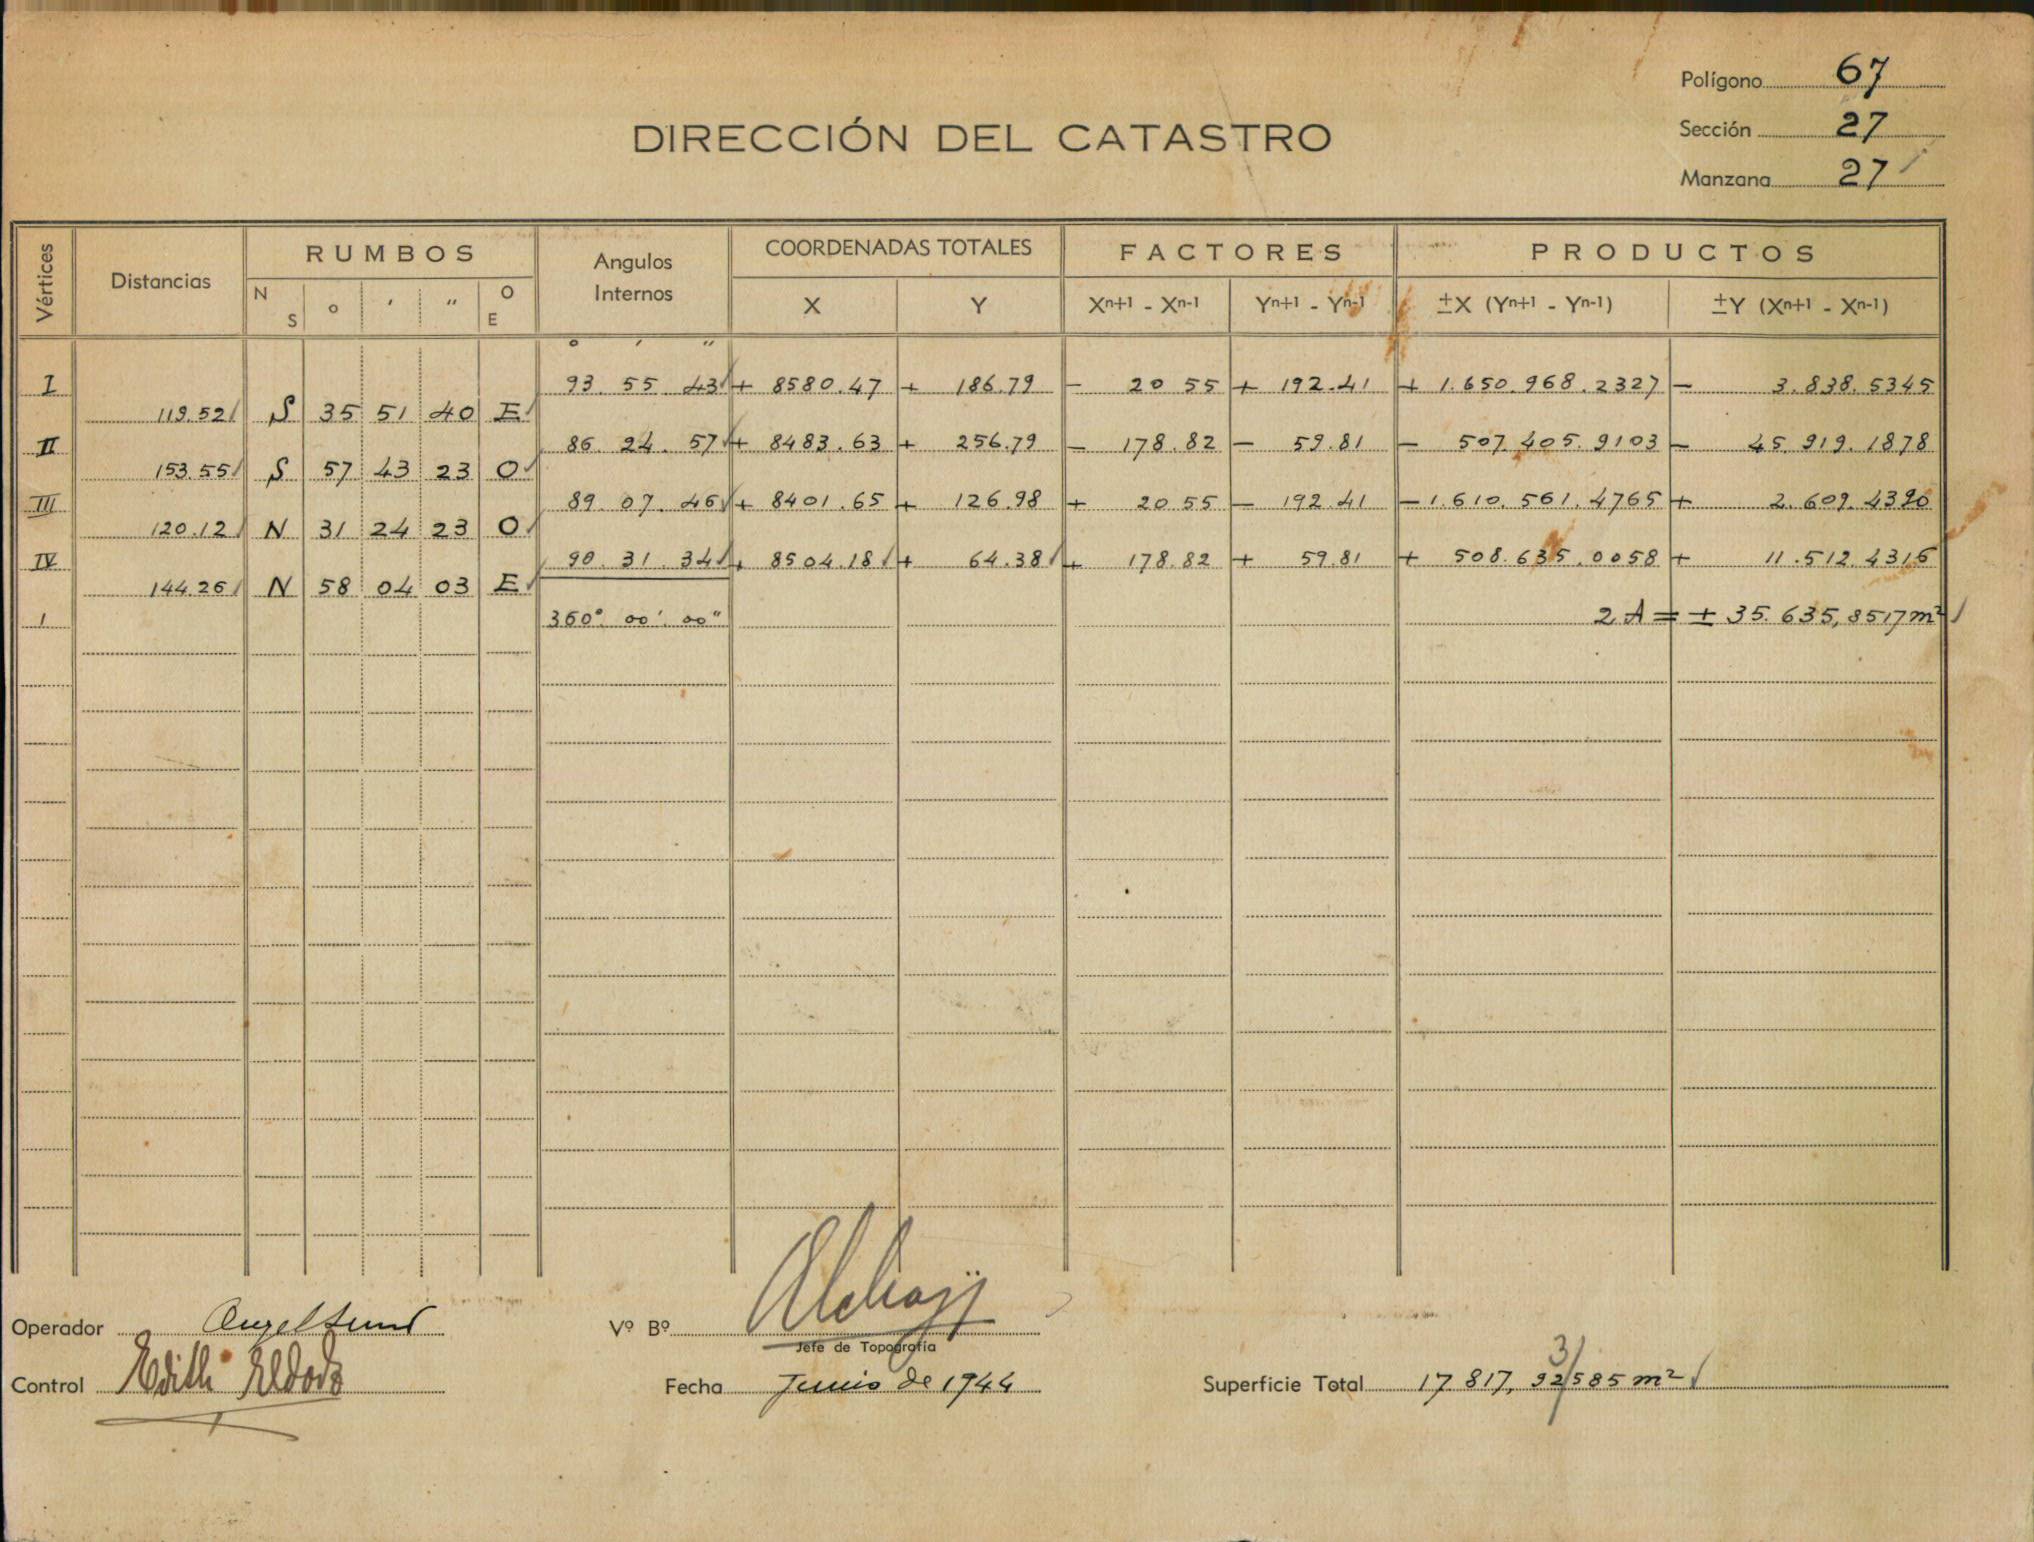 Polígono 67
DIRECCIÓN DEL CATASTRO
Sección 27
Manzana 27
Vértices Distancias RUMBOS N S o ′ ″ O E Angulos Internos COORDENADAS TOTALES X Y FACTORES Xn+1 - Xn-1 Yn+1 - Yn-1 PRODUCTOS ±X (Yn+1 - Yn-1) ±Y (Xn+1 - Xn-1)
o ′ ″
I 93. 55 43 + 8580.47 + 186.79 - 20 55 + 192.41 + 1.650.968.2327 - 3.838.5345
119.52 S 35 51 40 E
II 86. 24. 57 + 8483.63 + 256.79 - 178.82 - 59.81 - 507.405.9103 - 45.919.1878
153.55 S 57 43 23 O
III 89. 07. 46 + 8401.65 + 126.98 + 20 55 - 192.41 - 1.610.561.4765 + 2.609.4390
120.12 N 31 24 23 O
IV 90. 31. 34 + 8504.18 + 64.38 + 178.82 + 59.81 + 508.635.0058 + 11.512.4316
144.26 N 58 04 03 E
I 360° 00′ 00″ 2 A = ± 35.635,8517 m²
Operador
Vº Bº
Jefe de Topografía
Control Edith
Fecha Junio de 1944
Superficie Total 17.817, 92585 m²
3